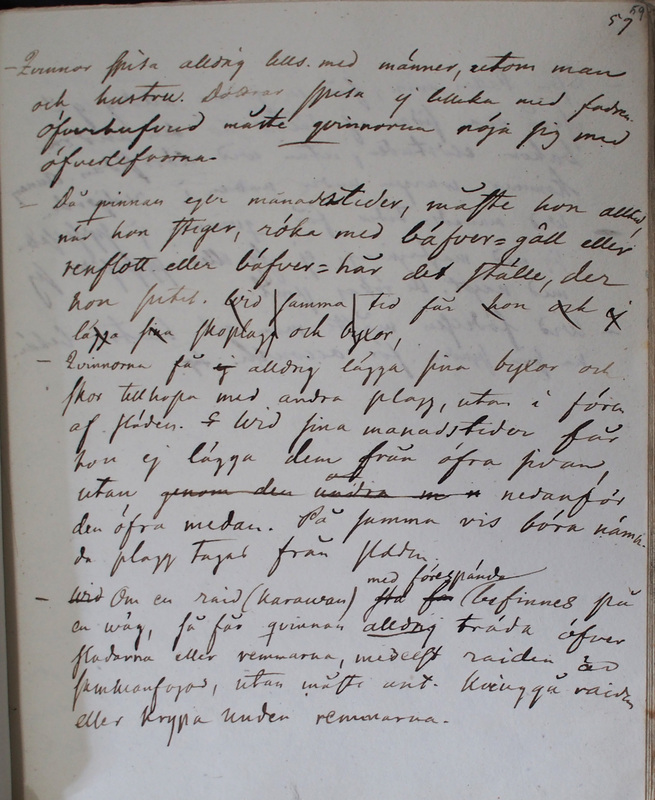 59
57
– Qvinnor spisa alldrig tills. med männer, utom man
och hustru. Döttrar spisa ej tillika med fadren.
öfverhufvud måste qvinnorna nöja sig med
öfverlefvorna.
– Då qvinnan eger månadstider, måste hon alltid
när hon stiger, röka med bäfver=gäll eller
renflott eller bäfver=hår det ställe, der
hon sutit. Wid samma tid får hon och ej
lägga sina skoplagg och byxor,
– Qvinnorna få ej alldrig lägga sina byxor och
skor tillhopa med andra plagg, utan i fóra
af släden. Wid sina månadstider får
hon ej lägga dem från öfra sidan,
utan genom den nedanför
den öfra medan. På samma vis böra nämn-
da plagg tagas från släden.
med förespända
– Wid Om en raid (karawan) befinnes på
en wäg, så får qvinnan alldrig träda öfver
sladarna eller remmarna, medelst raiden är
samManfogad, utan måste ant. Kringgå raiden
eller krypa under remmarna.